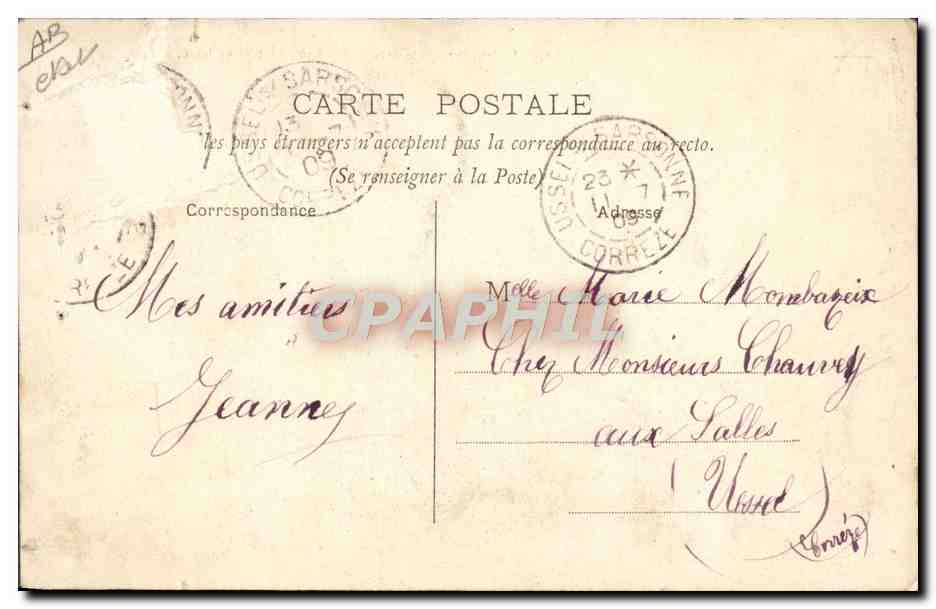 AB
CARTE POSTALE
les pays étrangers n'acceptent pas la correspondance au recto.
(Se renseigner à la Poste)
USSEL SARSONNE
23 *
11 7
09
CORREZE
Correspondance
Adresse
Mes amitiés
Jeanne
Melle Marie Mombazeix
Chez Monsieurs Chauvey
aux Salles
(Ussel)
(Corrèze)
CPAPHIL